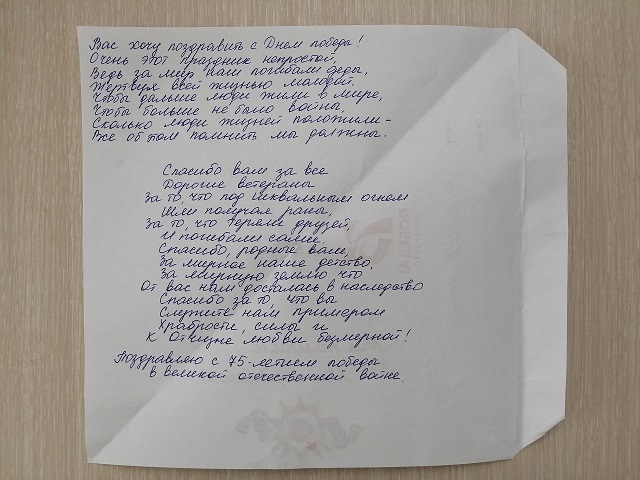 Вас хочу поздравить с Днем победы!
Очень этот праздник непростой,
Ведь за мир нам погибали деды,
Жертвуя всей жизнью молодой
Чтобы дальше люди жили в мире,
Чтобы больше не было войны,
Сколько люди жизней положили-
Все об том помнить мы должны.
Спасибо вам за все
Дорогие ветераны
За то, что под шквальным огнем
Шли получая раны,
За то, что теряли друзей,
И погибали сами.
Спасибо, родные вам,
За мирное наше детство,
За мирную землю что
От вас нам досталась в наследство
Спасибо за то, что вы
Служите нам примером
Храбрости, силы и
К Отчизне любви безмерной!
Поздравляю с 75-летием победы
в великой отечественной войне.